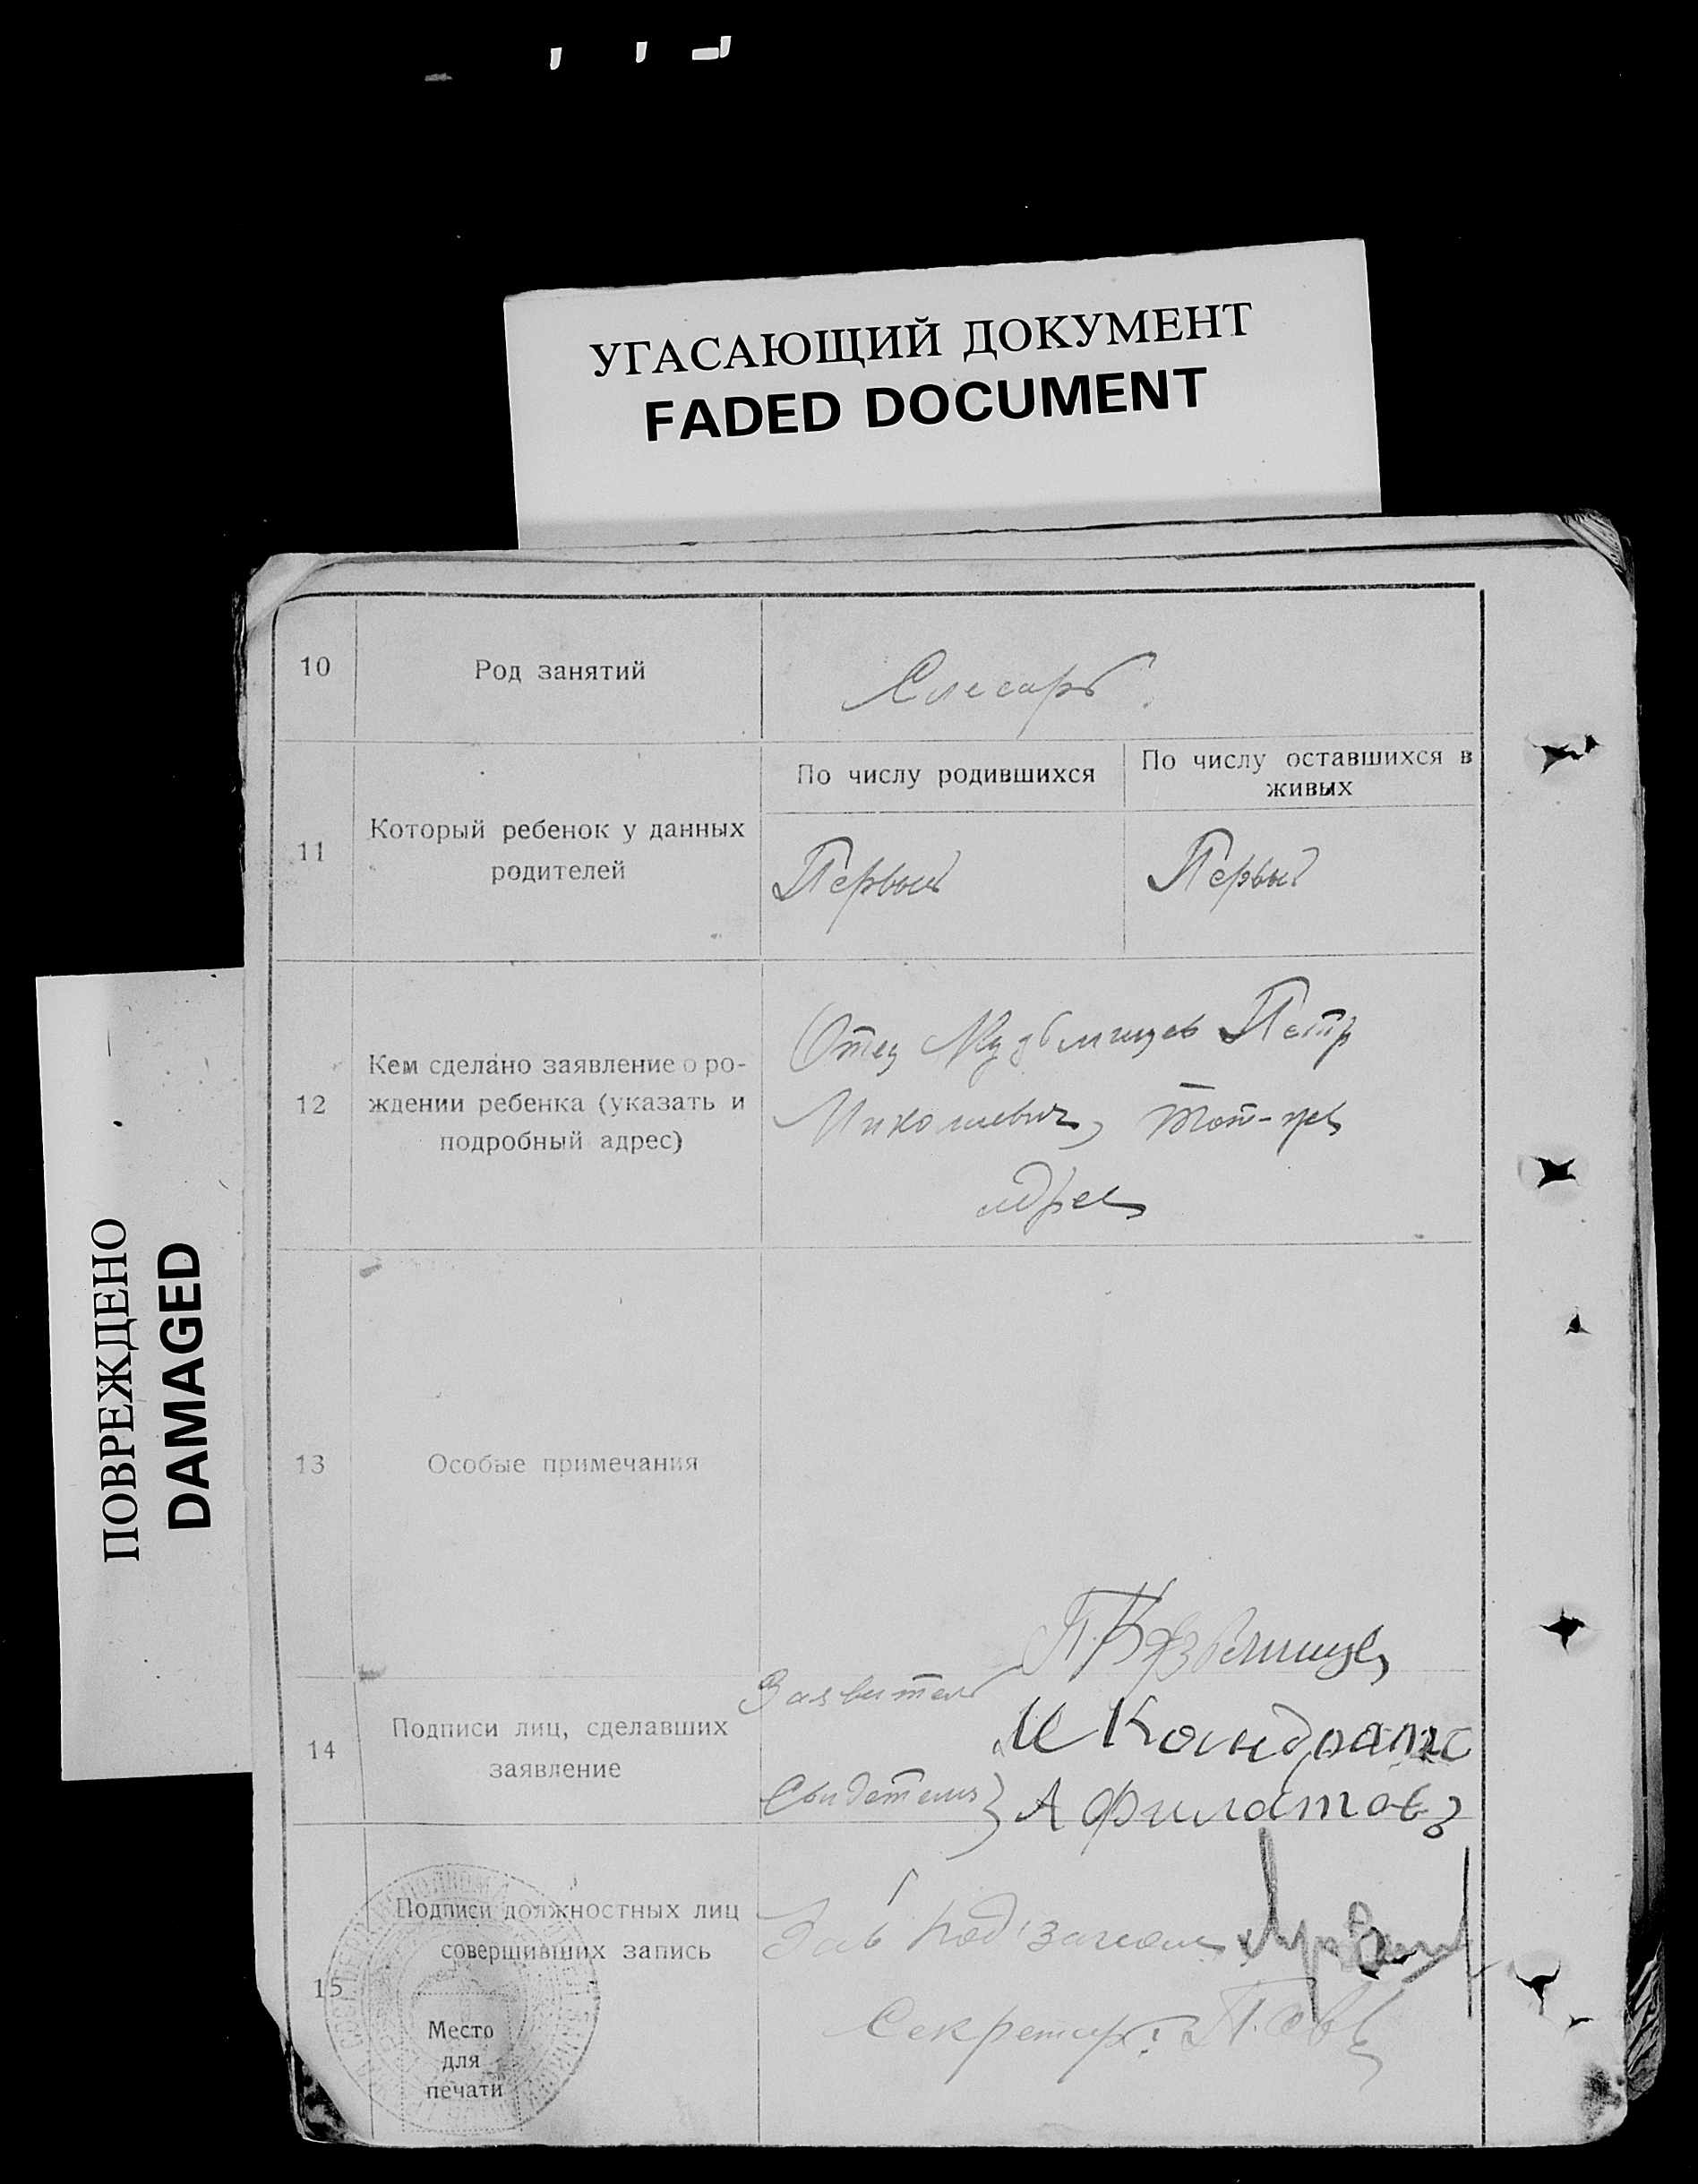 УГАСАЮЩИЙ ДОКУМЕНТ
FADED DOCUMENT
ПОВРЕЖДЕНО
DAMAGED
10
Род занятий
Слесарь.
11
Который ребенок у данных
родителей
По числу родившихся
По числу оставшихся в
живых
Первый
Первый
12
Кем сделано заявление о ро-
ждении ребенка (указать и
подробный адрес)
Отец Петр
Николаевич, тот-же
адрес
13
Особые примечания
14
Подписи лиц, сделавших
заявление
Заявитель
Свидетели
А Филатов
15
Подписи должностных лиц
совершивших запись
Место
для
печати
Зав под'загсом
Секретарь: